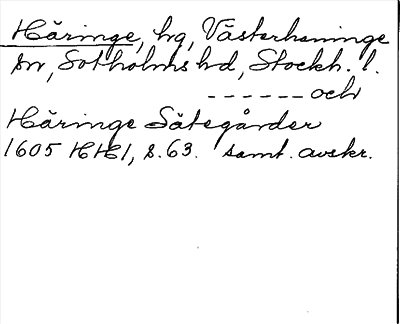 Häringe, hg, Västerhaninge
sn, Sotholms hd, Stockh. l.
------och
Häringe Sätegårder
1605 HH1, s. 63. samt. avskr.